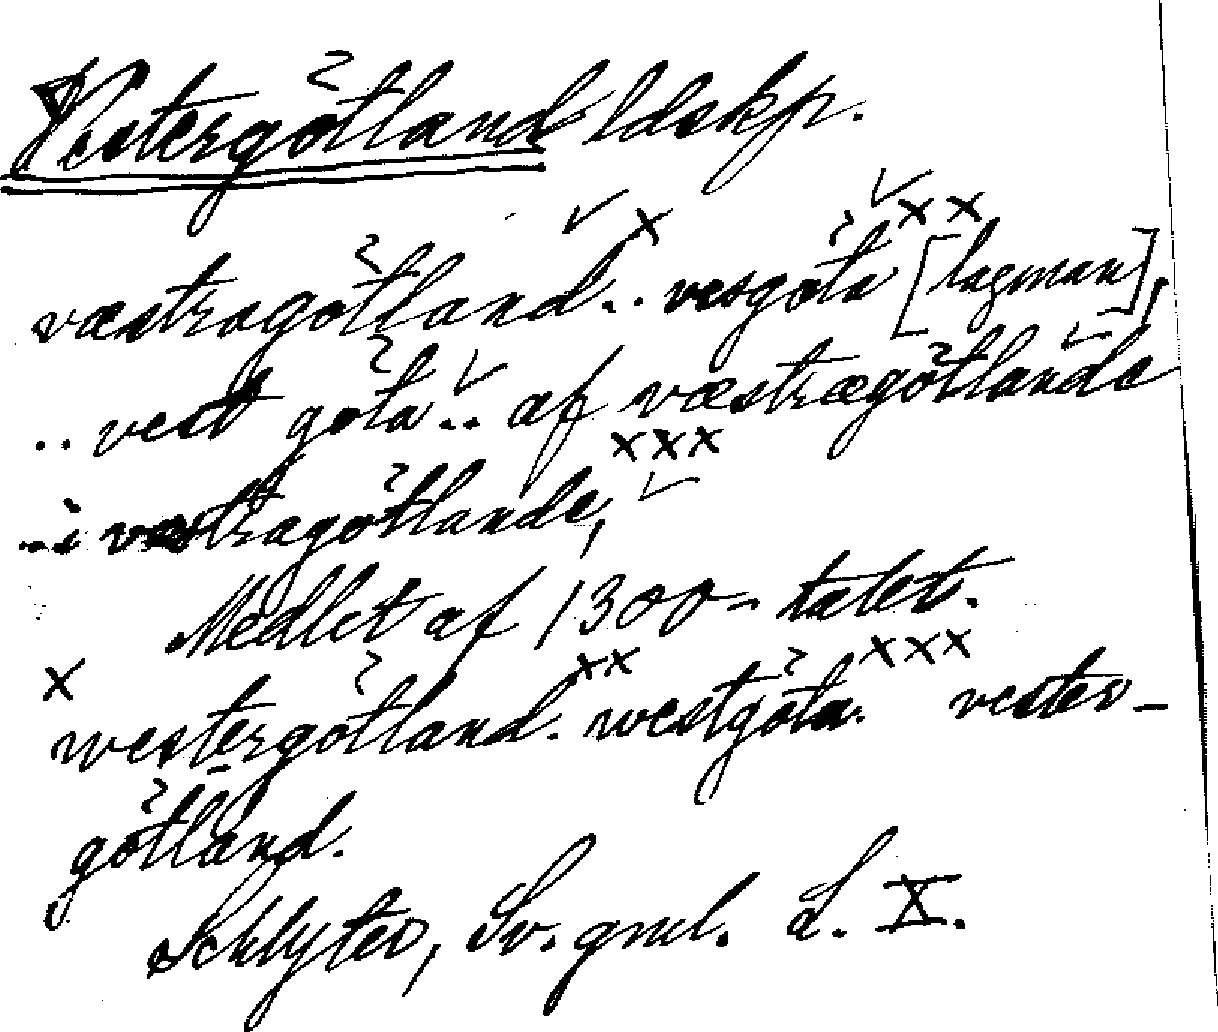 Vestergötland ldskp.
væstragötland.. vesgöta [lagman],
.. vest göta.. af væstrægötlande
.. i væstragötlande,
Medlet af 1300-talet.
x westergötland. xx westgöta. xxx vester-
götland.
Schlyter, Sv. gml. L. X.